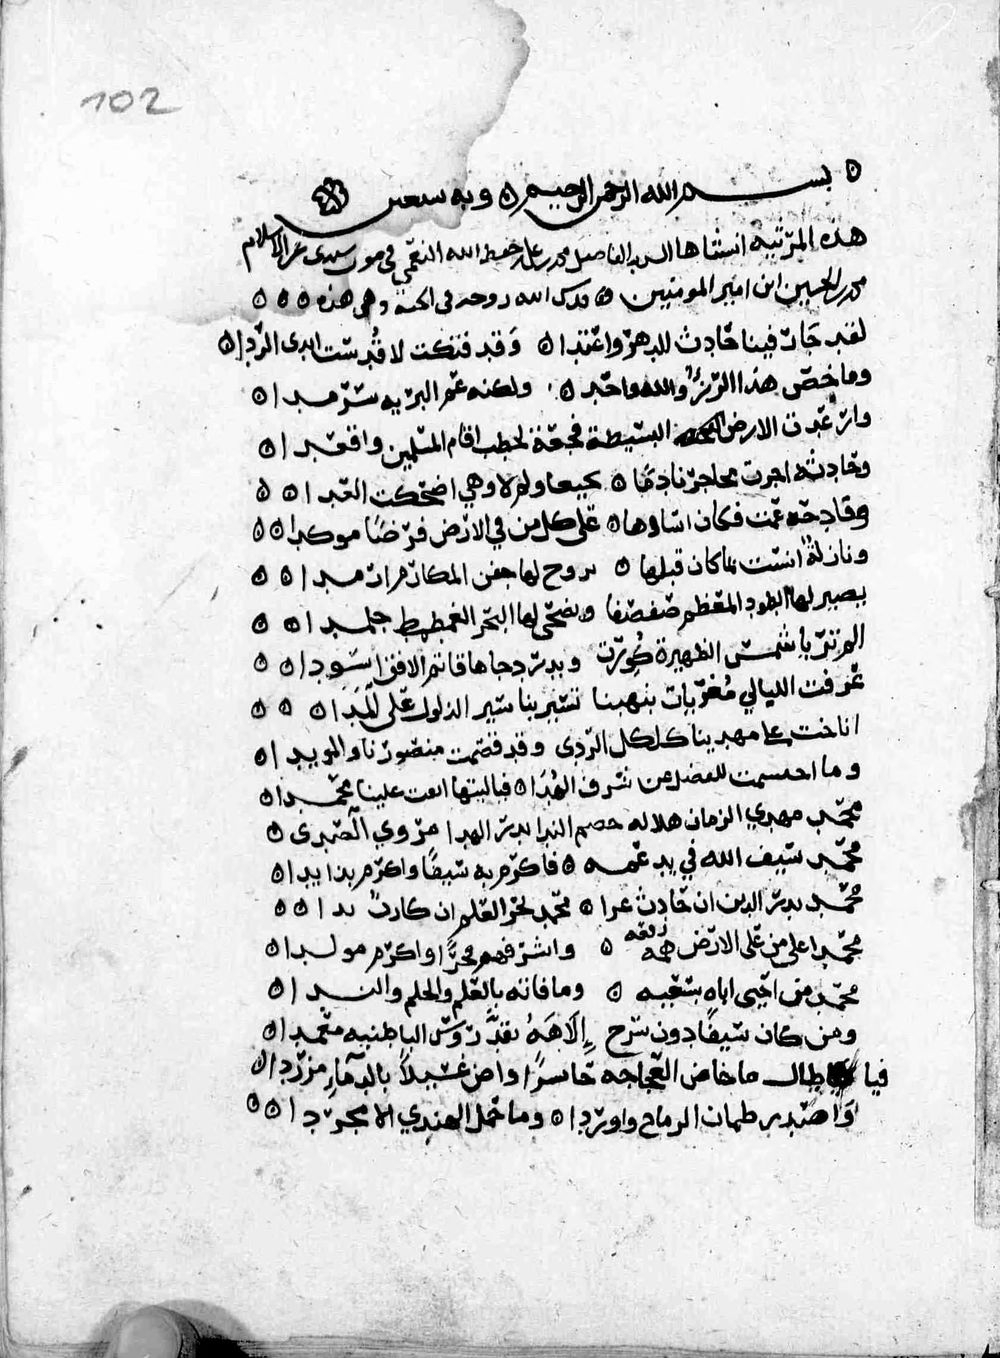 102
بسم الله الرحمن الرحيم ٥ وبه نستعين
هذه المرثيه انشاها السيد الفاضل محمد بن علي حفظ الله النعمي في موت سيدي عز الاسلام
محمد بن الحسين ابن امير المومنين ٥ قدس الله روحه في الجنه وهي هذه ٥ ٥ ٥
لقد جار فينا حادث للدهر واعتدا ٥ وقد فتكت لا قُدست ايدى الردا ٥
وما خص هذا الرزؤ والله واحد ٥ ولكنه عم البريه سرمدا ٥
وارعدت الارض البسيطة فجعة لخطب اقام المسلمين واقعدا ٥
وحادثه اجرت محاجرنا دمًا ٥ نجيعا ولم لا وهي اضحكت العدا ٥ ٥
وفادحه عمت فكان اساوها ٥ على كل من في الارض فرضًا موكدا ٥ ٥
ونازلة انست بما كان قبلها ٥ يروح لها جفن المكارم ارمدا ٥ ٥
يصير لها الطود المعظم صفصفا ويضحى لها البحر الغطمطم جلمدا ٥ ٥
الم تر يا شمس الظهيرة كُورت وبدر دجاها قاتم الافق اسودا ٥
عرفت الليالي مُغريات بنهبنا تسير بنا سير الذلول على المدا ٥ ٥ ٥
اناخت على مهدينا كلكل الردى وقد قصمت منصورنا والمويدا ٥
وما احتشمت للفضل من شرف الهدا ٥ فياليتها ابقت علينا محمدا ٥
محمد مهدي الزمان هلاله خصم الندا بدر الهدا مروي الصدى ٥
محمد سيف الله في يد عمه ٥ فاكرم به سيفًا واكرم بذا يدا ٥
محمد بدر الدين ان حادث عرا ٥ محمد بحر العلم ان كارث بدا ٥ ٥
محمد اعلى من على الارض همه رفعه ٥ واشرفهم محرًا واكرم مولدا ٥
محمد من احيى اباه بسعيه ٥ وما فاته بالعلم والحلم والندا ٥
ومن كان سيفًا دون شرح إلاهه يقد روس الباطنيه معمدا ٥
فيا طال ما خاض العجاجه حاسرًا واض غسيلاً بالدمآء مزردا ٥
وَاصدر ظمان الرماح واوردا ٥ وما حمل الهندي الا مجردا ٥ ٥